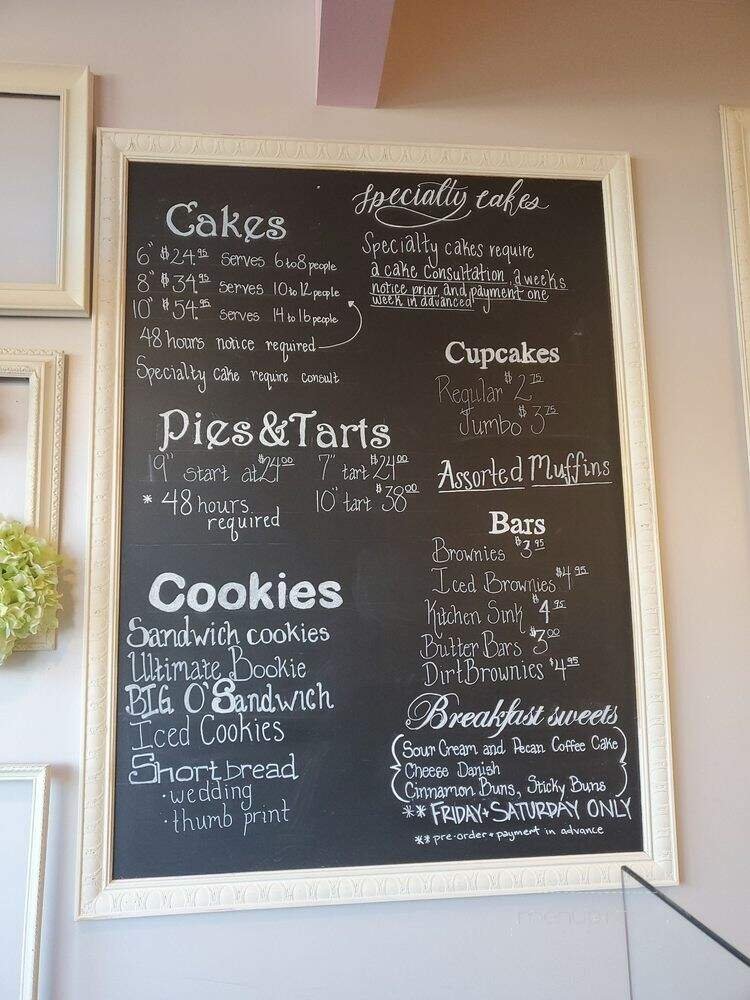 Cakes
6" $24.95 serves 6 to 8 people
8" $34.95 serves 10 to 12 people
10" $54.95 serves 14 to 16 people
48 hours notice required
Specialty cake require consult
Pies & Tarts
9" start at $24.00
* 48 hours
required
7" tart $24.00
10" tart $38.00
Cookies
Sandwich cookies
Ultimate Bookie
BIG O' Sandwich
Iced Cookies
Shortbread
· wedding
· thumb print
specialty cakes
Specialty cakes require
a cake consultation, 2 weeks
notice prior and payment one
week in advanced
Cupcakes
Regular $2.75
Jumbo $3.75
Assorted Muffins
Bars
Brownies $3.95
Iced Brownies $4.95
Kitchen Sink $4.95
Butter Bars $3.00
Dirt Brownies $4.95
Breakfast sweets
Sour Cream and Pecan Coffee Cake
Cheese Danish
Cinnamon Buns, Sticky Buns
** FRIDAY + SATURDAY ONLY
** pre-order + payment in advance